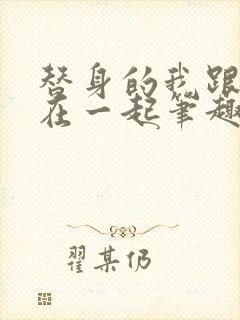 替身的我跟
在一起笔趣
翟某仍